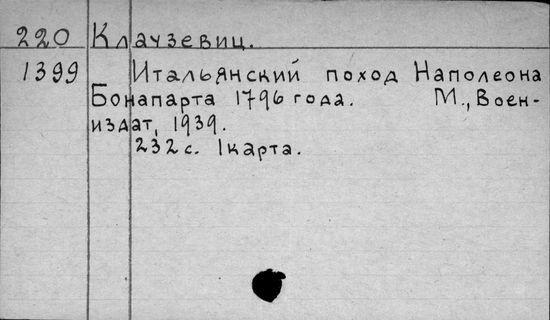 220 Клаузевиц.
1399 Итальянский поход Наполеона
Бонапарта 1796 года. М., Воен-
издат, 1939.
232 с. 1 карта.